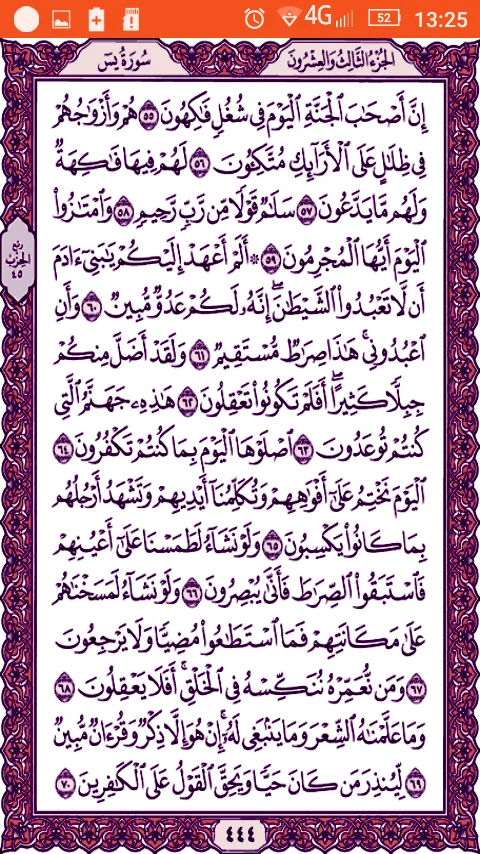 4G 52 13:25
الجزء الثالث والعشرون سورة يس
إِنَّ أَصْحَٰبَ ٱلْجَنَّةِ ٱلْيَوْمَ فِى شُغُلٍ فَٰكِهُونَ ٥٥ هُمْ وَأَزْوَٰجُهُمْ
فِى ظِلَٰلٍ عَلَى ٱلْأَرَآئِكِ مُتَّكِـُٔونَ ٥٦ لَهُمْ فِيهَا فَٰكِهَةٌ
وَلَهُم مَّا يَدَّعُونَ ٥٧ سَلَٰمٌ قَوْلًا مِّن رَّبٍّ رَّحِيمٍ ٥٨ وَٱمْتَٰزُوا۟
ٱلْيَوْمَ أَيُّهَا ٱلْمُجْرِمُونَ ٥٩ ۞ أَلَمْ أَعْهَدْ إِلَيْكُمْ يَٰبَنِىٓ ءَادَمَ
ربع
الحزب
٤٥
أَن لَّا تَعْبُدُوا۟ ٱلشَّيْطَٰنَ ۖ إِنَّهُۥ لَكُمْ عَدُوٌّ مُّبِينٌ ٦٠ وَأَنِ
ٱعْبُدُونِى ۚ هَٰذَا صِرَٰطٌ مُّسْتَقِيمٌ ٦١ وَلَقَدْ أَضَلَّ مِنكُمْ
جِبِلًّا كَثِيرًا ۖ أَفَلَمْ تَكُونُوا۟ تَعْقِلُونَ ٦٢ هَٰذِهِۦ جَهَنَّمُ ٱلَّتِى
كُنتُمْ تُوعَدُونَ ٦٣ ٱصْلَوْهَا ٱلْيَوْمَ بِمَا كُنتُمْ تَكْفُرُونَ ٦٤
ٱلْيَوْمَ نَخْتِمُ عَلَىٰٓ أَفْوَٰهِهِمْ وَتُكَلِّمُنَآ أَيْدِيهِمْ وَتَشْهَدُ أَرْجُلُهُم
بِمَا كَانُوا۟ يَكْسِبُونَ ٦٥ وَلَوْ نَشَآءُ لَطَمَسْنَا عَلَىٰٓ أَعْيُنِهِمْ
فَٱسْتَبَقُوا۟ ٱلصِّرَٰطَ فَأَنَّىٰ يُبْصِرُونَ ٦٦ وَلَوْ نَشَآءُ لَمَسَخْنَٰهُمْ
عَلَىٰ مَكَانَتِهِمْ فَمَا ٱسْتَطَٰعُوا۟ مُضِيًّا وَلَا يَرْجِعُونَ
٦٧ وَمَن نُّعَمِّرْهُ نُنَكِّسْهُ فِى ٱلْخَلْقِ ۖ أَفَلَا يَعْقِلُونَ ٦٨
وَمَا عَلَّمْنَٰهُ ٱلشِّعْرَ وَمَا يَنۢبَغِى لَهُۥٓ ۚ إِنْ هُوَ إِلَّا ذِكْرٌ وَقُرْءَانٌ مُّبِينٌ
٦٩ لِّيُنذِرَ مَن كَانَ حَيًّا وَيَحِقَّ ٱلْقَوْلُ عَلَى ٱلْكَٰفِرِينَ ٧٠
٤٤٤